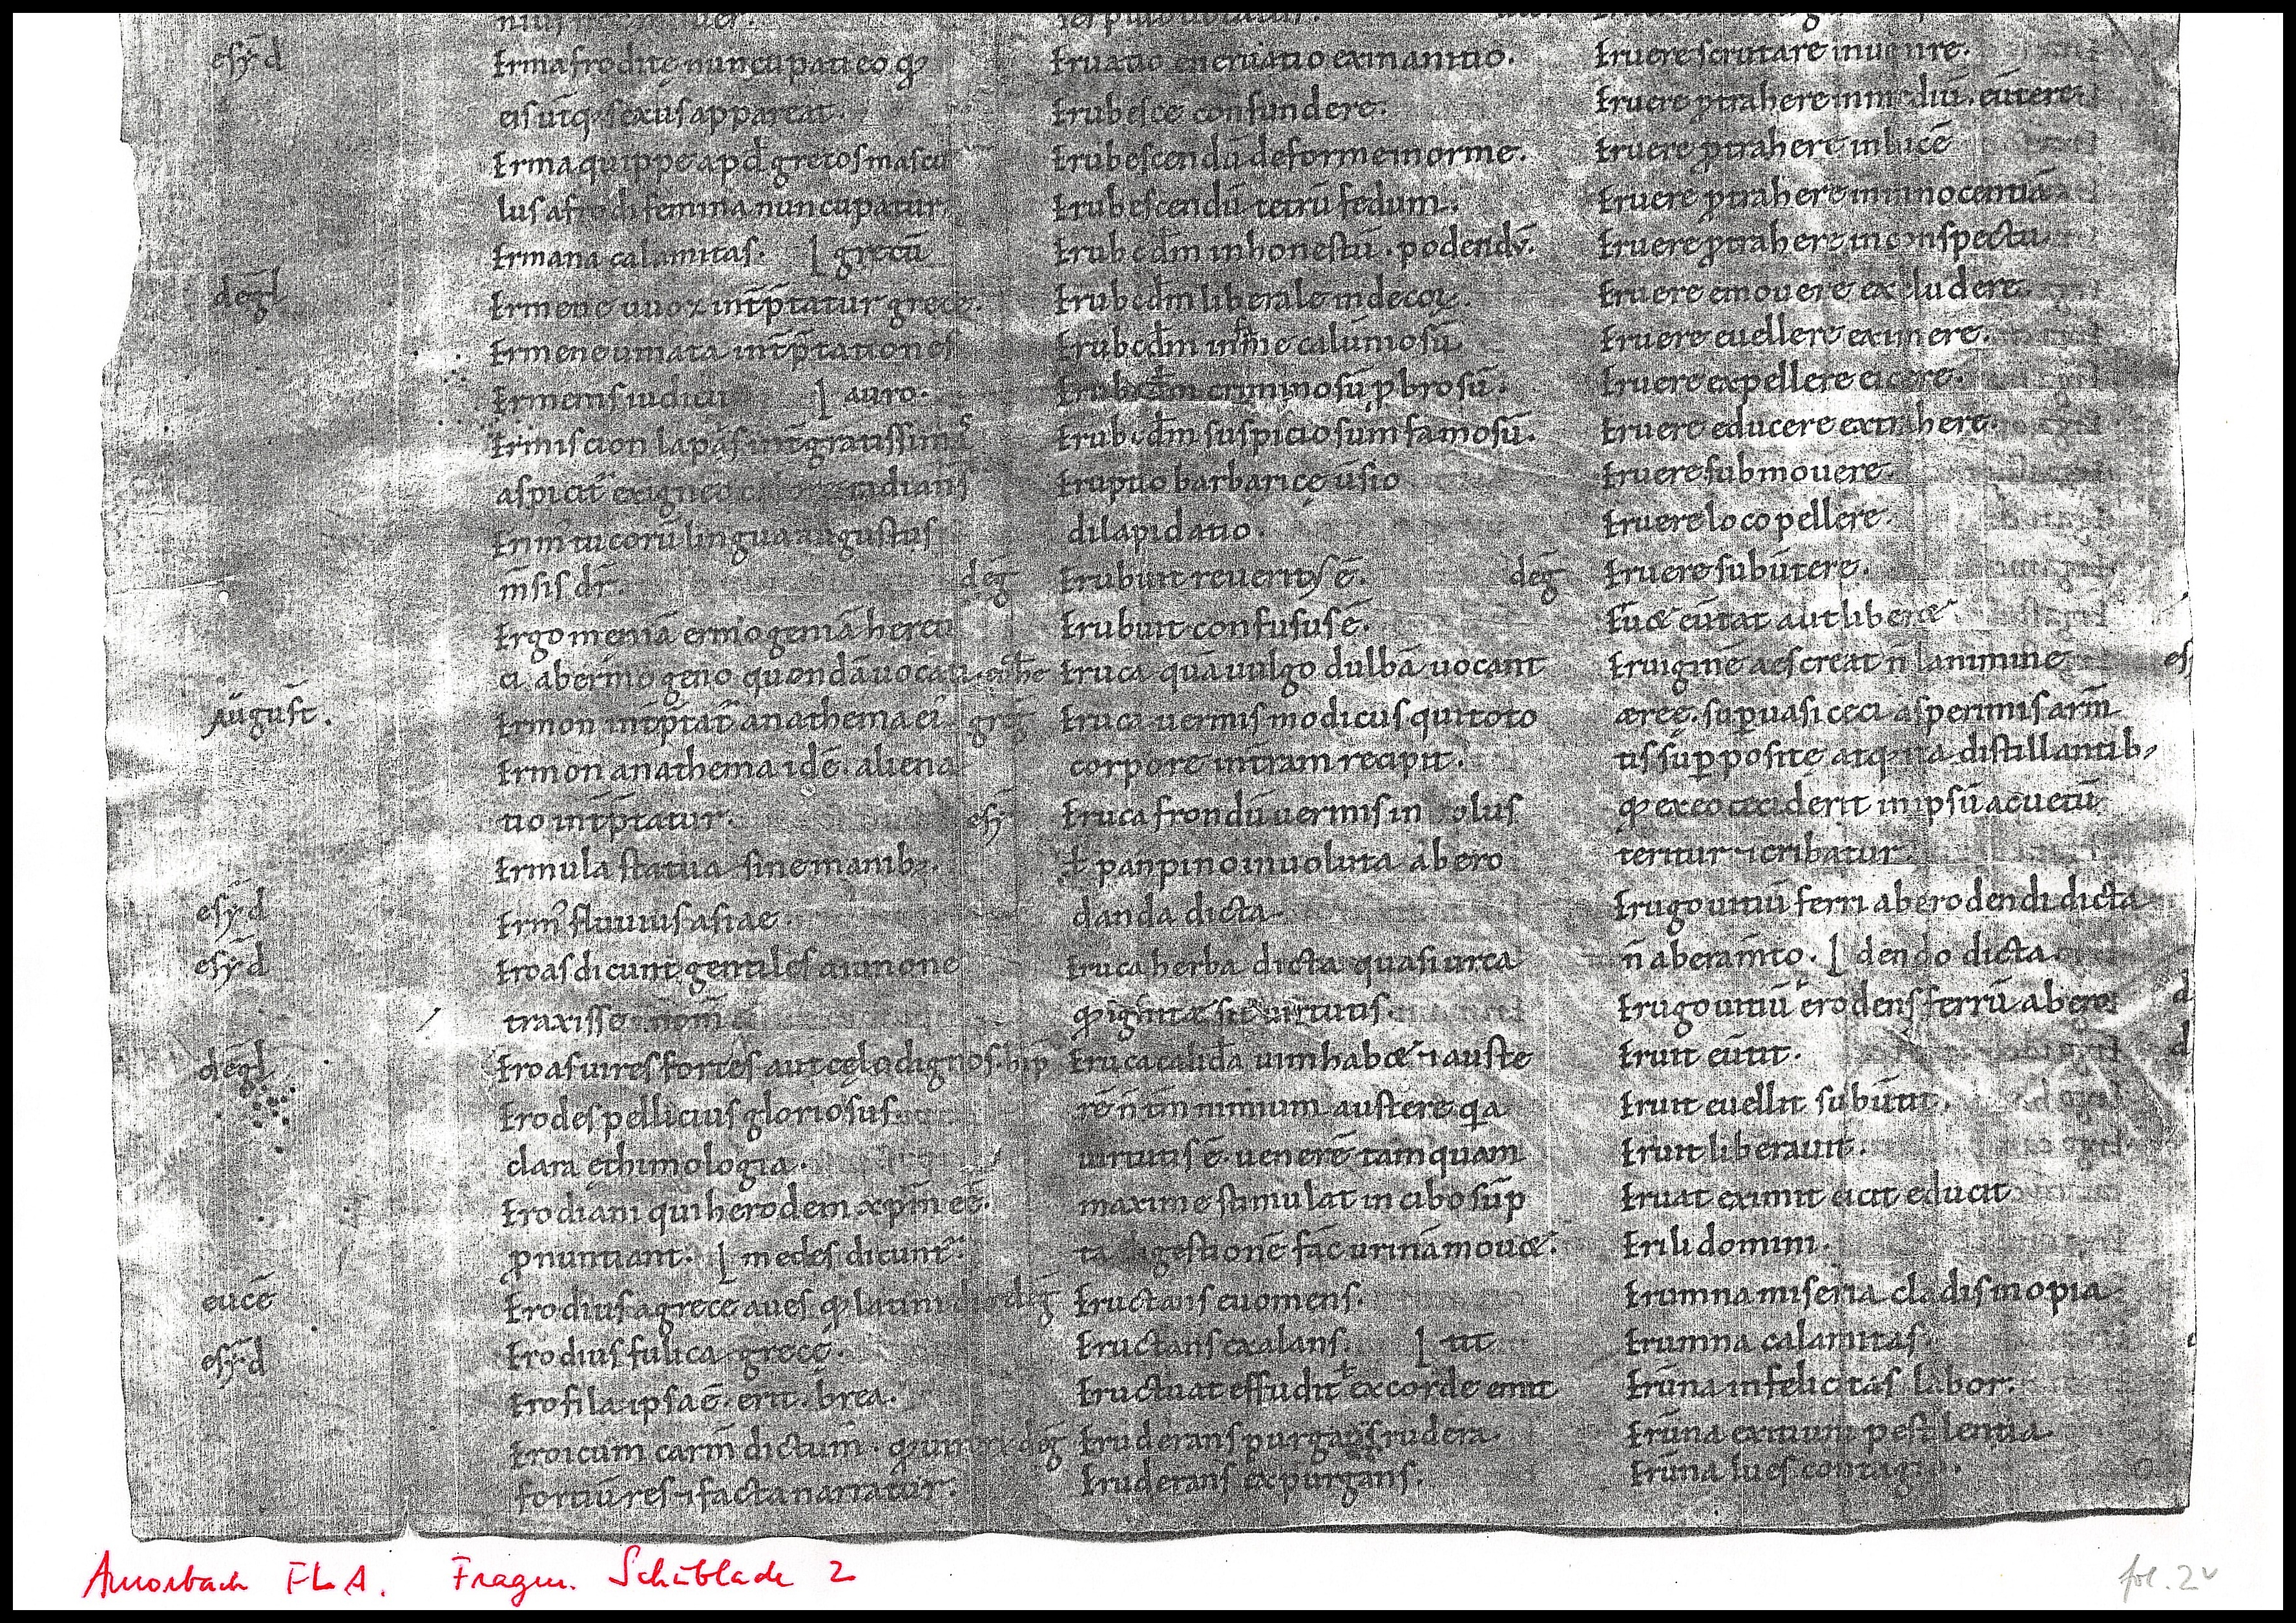 esẏd
Ermafrodite nuncupati eo ꝙ
eis ut̄q; sexus appareat.
Erma quippe apđ grecos mascu
lus afrodi femina nuncupatur
Ermana calamitas. ⌊ grecū
degl̄
Ermene uuoz int̄p̄tatur grece.
Ermeneumata int̄p̄tationes
Ermenis iudicii ⌊ auro.
Ermiscion lapas
aspicit exigneo
lingua augustus
m̄sis dr̄.
Ergomeniā ermogeniā hereti
ci ab ermogeno quondā uocati.
August̄.
Ermon int̄p̄tat̄ anathema ei
Ermon anathema idē. aliena
tio int̄p̄tatur.
Ermula statua sine manib;.
esẏd
Erm᷒ fluuius asiae.
esẏd
Eroas dicunt gentiles a iunone
traxisse nom̄
degl̄
Eroas uires fortes aut cęlo dignos.
Erodes pellicius gloriosus.
clara ethimologia.
Erodiani qui herodem xp̄m eē.
ꝓnuntiant. ⌊ medes dicunt̄.
eucē
Erodius a grece aues ꝙ latini
esẏd
Erodius fulica grece.
Erofila ipsa ē. erit. brea.
Eroicum carm̄ dictum.
fortiū res ⁊ facta narratur.
Eruatio eneruatio exinanitio.
Erubesce confundere.
Erubescendū deforme inorme.
Erubescendū tetrū fedum.
Erubcđm inhonestū. podendū.
Erubcđm liberale indecoꝝ.
Erubcđm calumiosū
Erubcđm criminosū ꝓbrosū.
Erubcđm suspiciosum famosū.
Eruptio barbarice ūsio
dilapidatio.
deḡ
Erubuit reuerit᷒ ē.
Erubuit confusus ē.
Eruca quā uulgo dulbā uocant
Eruca uermis modicus qui toto
corpore intram recipit.
esẏ
Eruca frondū uermis in olus
ł panpino inuoluta ab ero
danda dicta
Eruca herba dicta quasi urca
ꝙ ignitæ sit uirtutis.
Eruca calida uim habꝫ ⁊ auste
rē n̄ tn̄ nimium austere qa
uirtutis ē. uenerē tamquam
maxime stimulat in cibo sūp
ta digestionē fac urinā mouꝫ.
deḡ
Eructans euomens.
Eructans exalans. ⌊ tit
Eructuat effudit ł ex corde emit
deḡ
Eruderans purgans rudera.
Eruderans expurgans.
Eruere scrutare inuenire.
Eruere ꝓtrahere in mediū. eūtere.
Eruere ꝓtrahere in lucē
Eruere ꝓtrahere in innocentiā
Eruere ꝓtrahere in conspectu
Eruere emouere excludere.
Eruere euellere eximere.
Eruere expellere eicere.
Eruere educere extrahere.
Eruere submouere.
Eruere loco pellere.
deḡ
Eruere subūtere.
eūtat aut liberꝫ
Eruiginē aes creat n̄ lammine
ęreę. sup uasi ceci asperimis arm̄
tis sup posite atq; ita distillantib;
ꝙ ex eo ceciderit in ipsū acuetū
teritur ⁊ cribatur.
Erugo uitiū ferri ab erodendi dicta
n̄ ab eram̄to. ⌊ dendo dicta.
Erugo uitiū erodens ferrū ab ero
Eruit eūtit.
Eruit euellit subūtit.
Eruit liberauit.
Eruat eximit eicit educit
Erili domini.
Erumna miseria cladis inopia
Erumna calamitas.
Erūna infelicitas labor.
Erūna exitium pestilentia.
Erūna lues
Amorbach FLA. Fragm. Schublade 2
fol. 2v